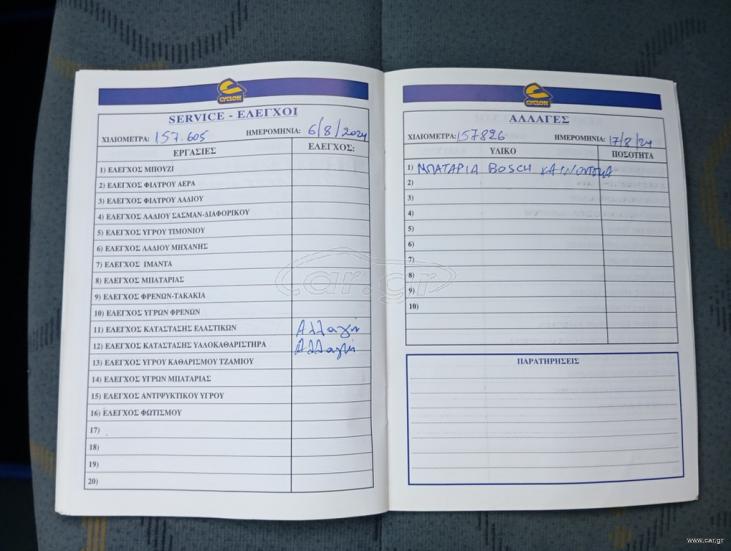 CYCLON
SERVICE - ΕΛΕΓΧΟΙ
ΧΙΛΙΟΜΕΤΡΑ: 157.605 ΗΜΕΡΟΜΗΝΙΑ: 6/8/2024
ΕΡΓΑΣΙΕΣ ΕΛΕΓΧΟΣ:
1) ΕΛΕΓΧΟΣ ΜΠΟΥΖΙ
2) ΕΛΕΓΧΟΣ ΦΙΛΤΡΟΥ ΑΕΡΑ
3) ΕΛΕΓΧΟΣ ΦΙΛΤΡΟΥ ΛΑΔΙΟΥ
4) ΕΛΕΓΧΟΣ ΛΑΔΙΟΥ ΣΑΣΜΑΝ-ΔΙΑΦΟΡΙΚΟΥ
5) ΕΛΕΓΧΟΣ ΥΓΡΟΥ ΤΙΜΟΝΙΟΥ
6) ΕΛΕΓΧΟΣ ΛΑΔΙΟΥ ΜΗΧΑΝΗΣ
7) ΕΛΕΓΧΟΣ ΙΜΑΝΤΑ
8) ΕΛΕΓΧΟΣ ΜΠΑΤΑΡΙΑΣ
9) ΕΛΕΓΧΟΣ ΦΡΕΝΩΝ-ΤΑΚΑΚΙΑ
10) ΕΛΕΓΧΟΣ ΥΓΡΩΝ ΦΡΕΝΩΝ
11) ΕΛΕΓΧΟΣ ΚΑΤΑΣΤΑΣΗΣ ΕΛΑΣΤΙΚΩΝ Αλλαγή
12) ΕΛΕΓΧΟΣ ΚΑΤΑΣΤΑΣΗΣ ΥΑΛΟΚΑΘΑΡΙΣΤΗΡΑ Αλλαγή
13) ΕΛΕΓΧΟΣ ΥΓΡΟΥ ΚΑΘΑΡΙΣΜΟΥ ΤΖΑΜΙΟΥ
14) ΕΛΕΓΧΟΣ ΥΓΡΩΝ ΜΠΑΤΑΡΙΑΣ
15) ΕΛΕΓΧΟΣ ΑΝΤΙΨΥΚΤΙΚΟΥ ΥΓΡΟΥ
16) ΕΛΕΓΧΟΣ ΦΩΤΙΣΜΟΥ
17)
18)
19)
20)
CYCLON
ΑΛΛΑΓΕΣ
ΧΙΛΙΟΜΕΤΡΑ: 157826 ΗΜΕΡΟΜΗΝΙΑ: 17/8/24
ΥΛΙΚΟ ΠΟΣΟΤΗΤΑ
1) ΜΠΑΤΑΡΙΑ BOSCH
2)
3)
4)
5)
6)
7)
8)
9)
10)
ΠΑΡΑΤΗΡΗΣΕΙΣ
car.gr
www.car.gr